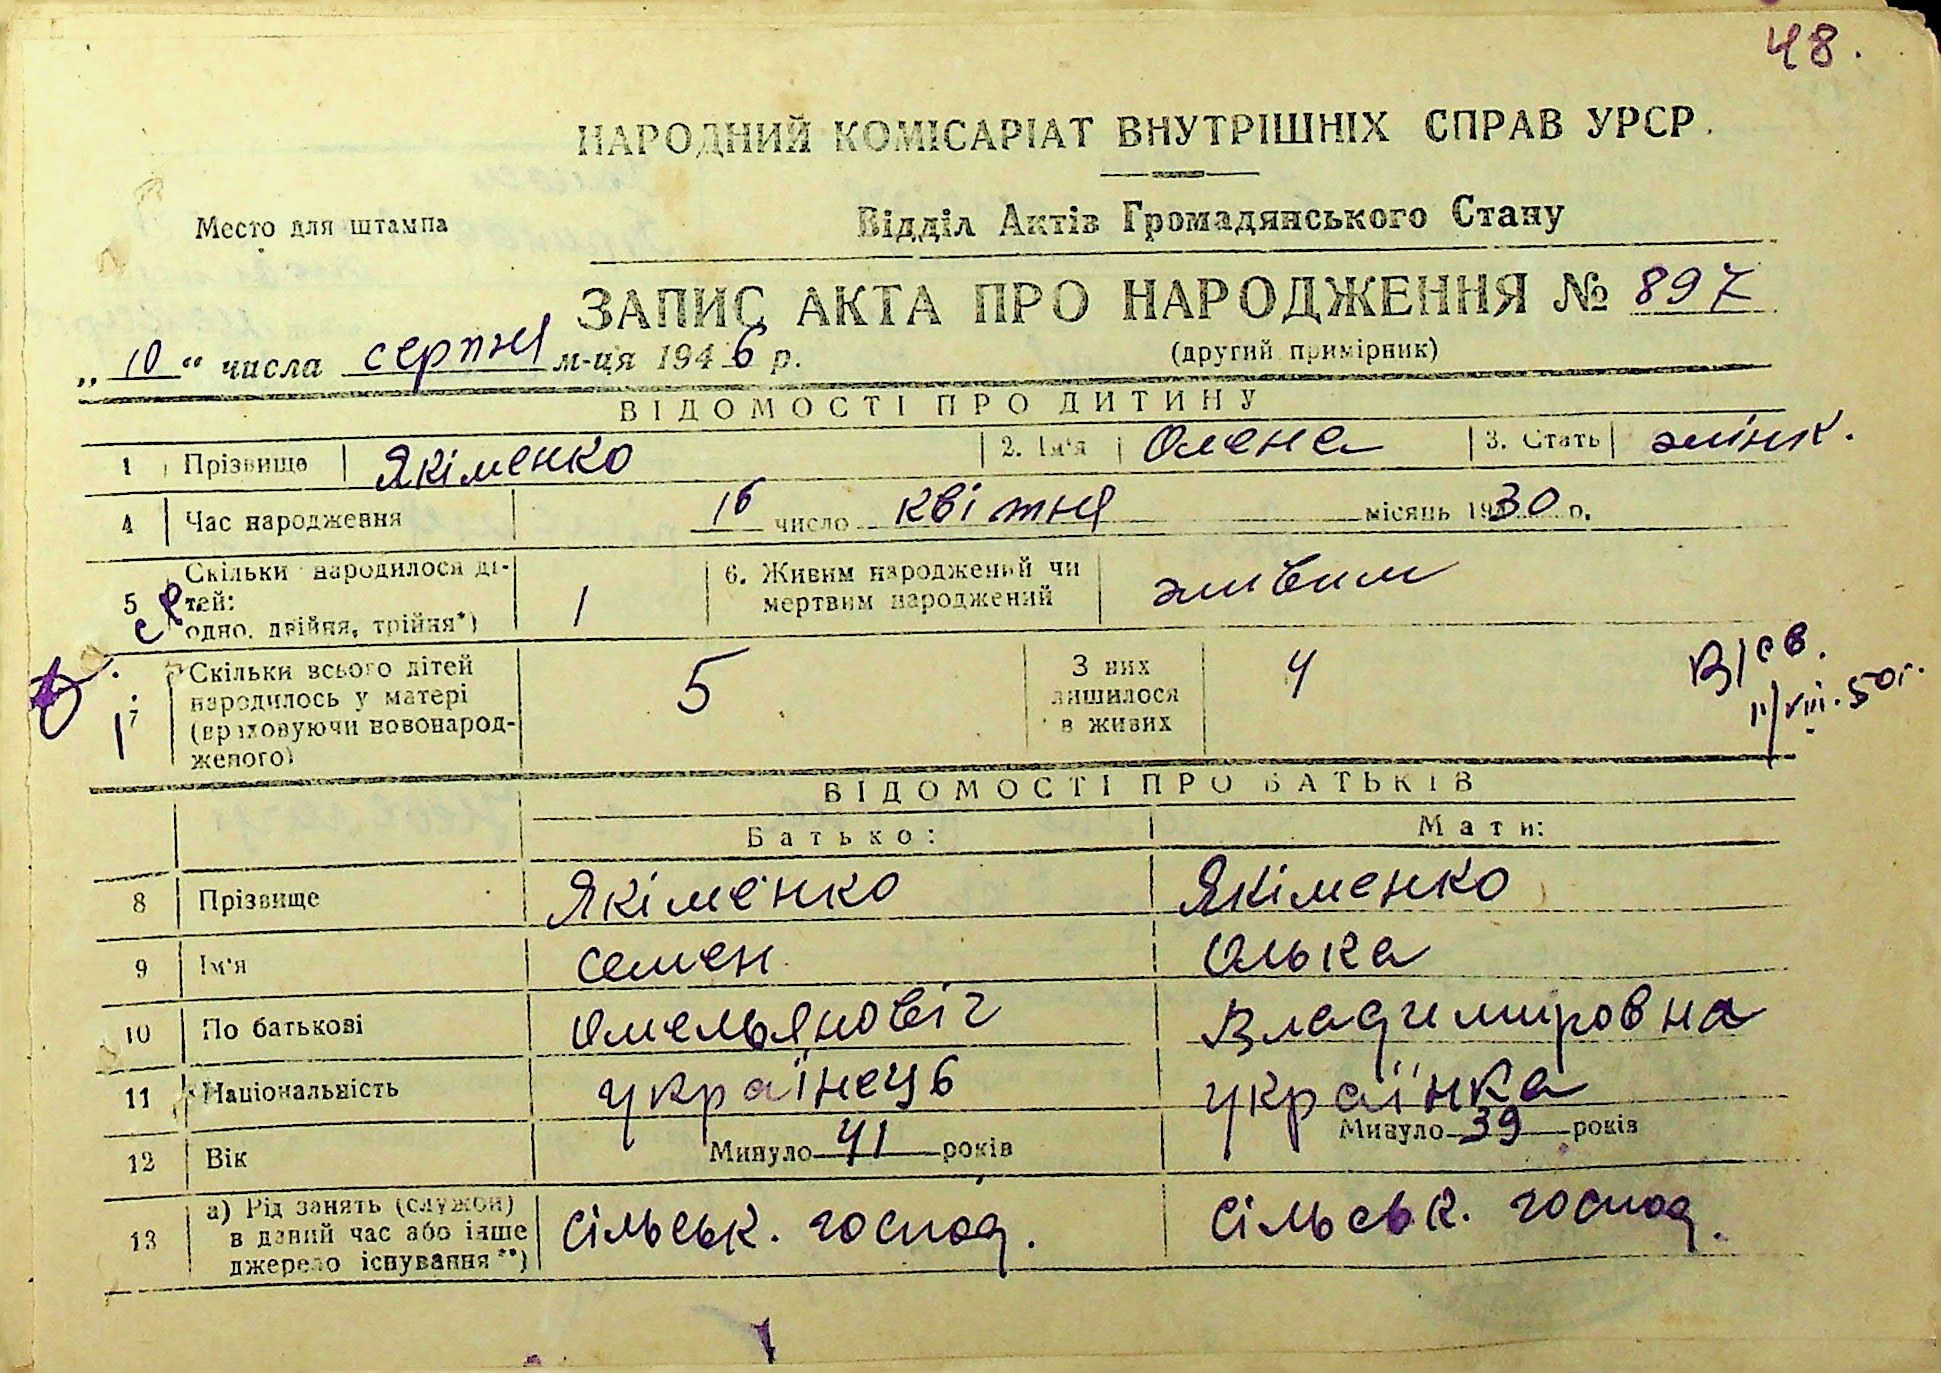 48.
НАРОДНИЙ КОМІСАРІАТ ВНУТРІШНІХ СПРАВ УРСР.
Место для штампа
Відділ Актів Громадянського Стану
ЗАПИС АКТА ПРО НАРОДЖЕННЯ № 897
„ 10 “ числа серпня м-ця 1946 р.
(другий примірник)
ВІДОМОСТІ ПРО ДИТИНУ
1 Прізвище Якіменко 2. Ім'я Олена 3. Стать жінк.
4 Час народження 16 число квітня місяць 1930 р.
5 Скільки народилося ді-
тей:
одно, двійня, трійня*) 1
6. Живим народжений чи
мертвим народжений живим
7 Скільки всього дітей
народилось у матері
(враховуючи новонарод-
женого) 5
З них
лишилося
в живих 4
В/св.
11/VIII.50г.
ВІДОМОСТІ ПРО БАТЬКІВ
Батько: Мати:
8 Прізвище Якіменко Якіменко
9 Ім'я Семен Олька
10 По батькові Омельяновіч Владимировна
11 Національність українець українка
12 Вік Минуло 41 років Минуло 39 років
13 а) Рід занять (служби)
в даний час або інше
джерело існування**) сільськ. господ. сільськ. господ.